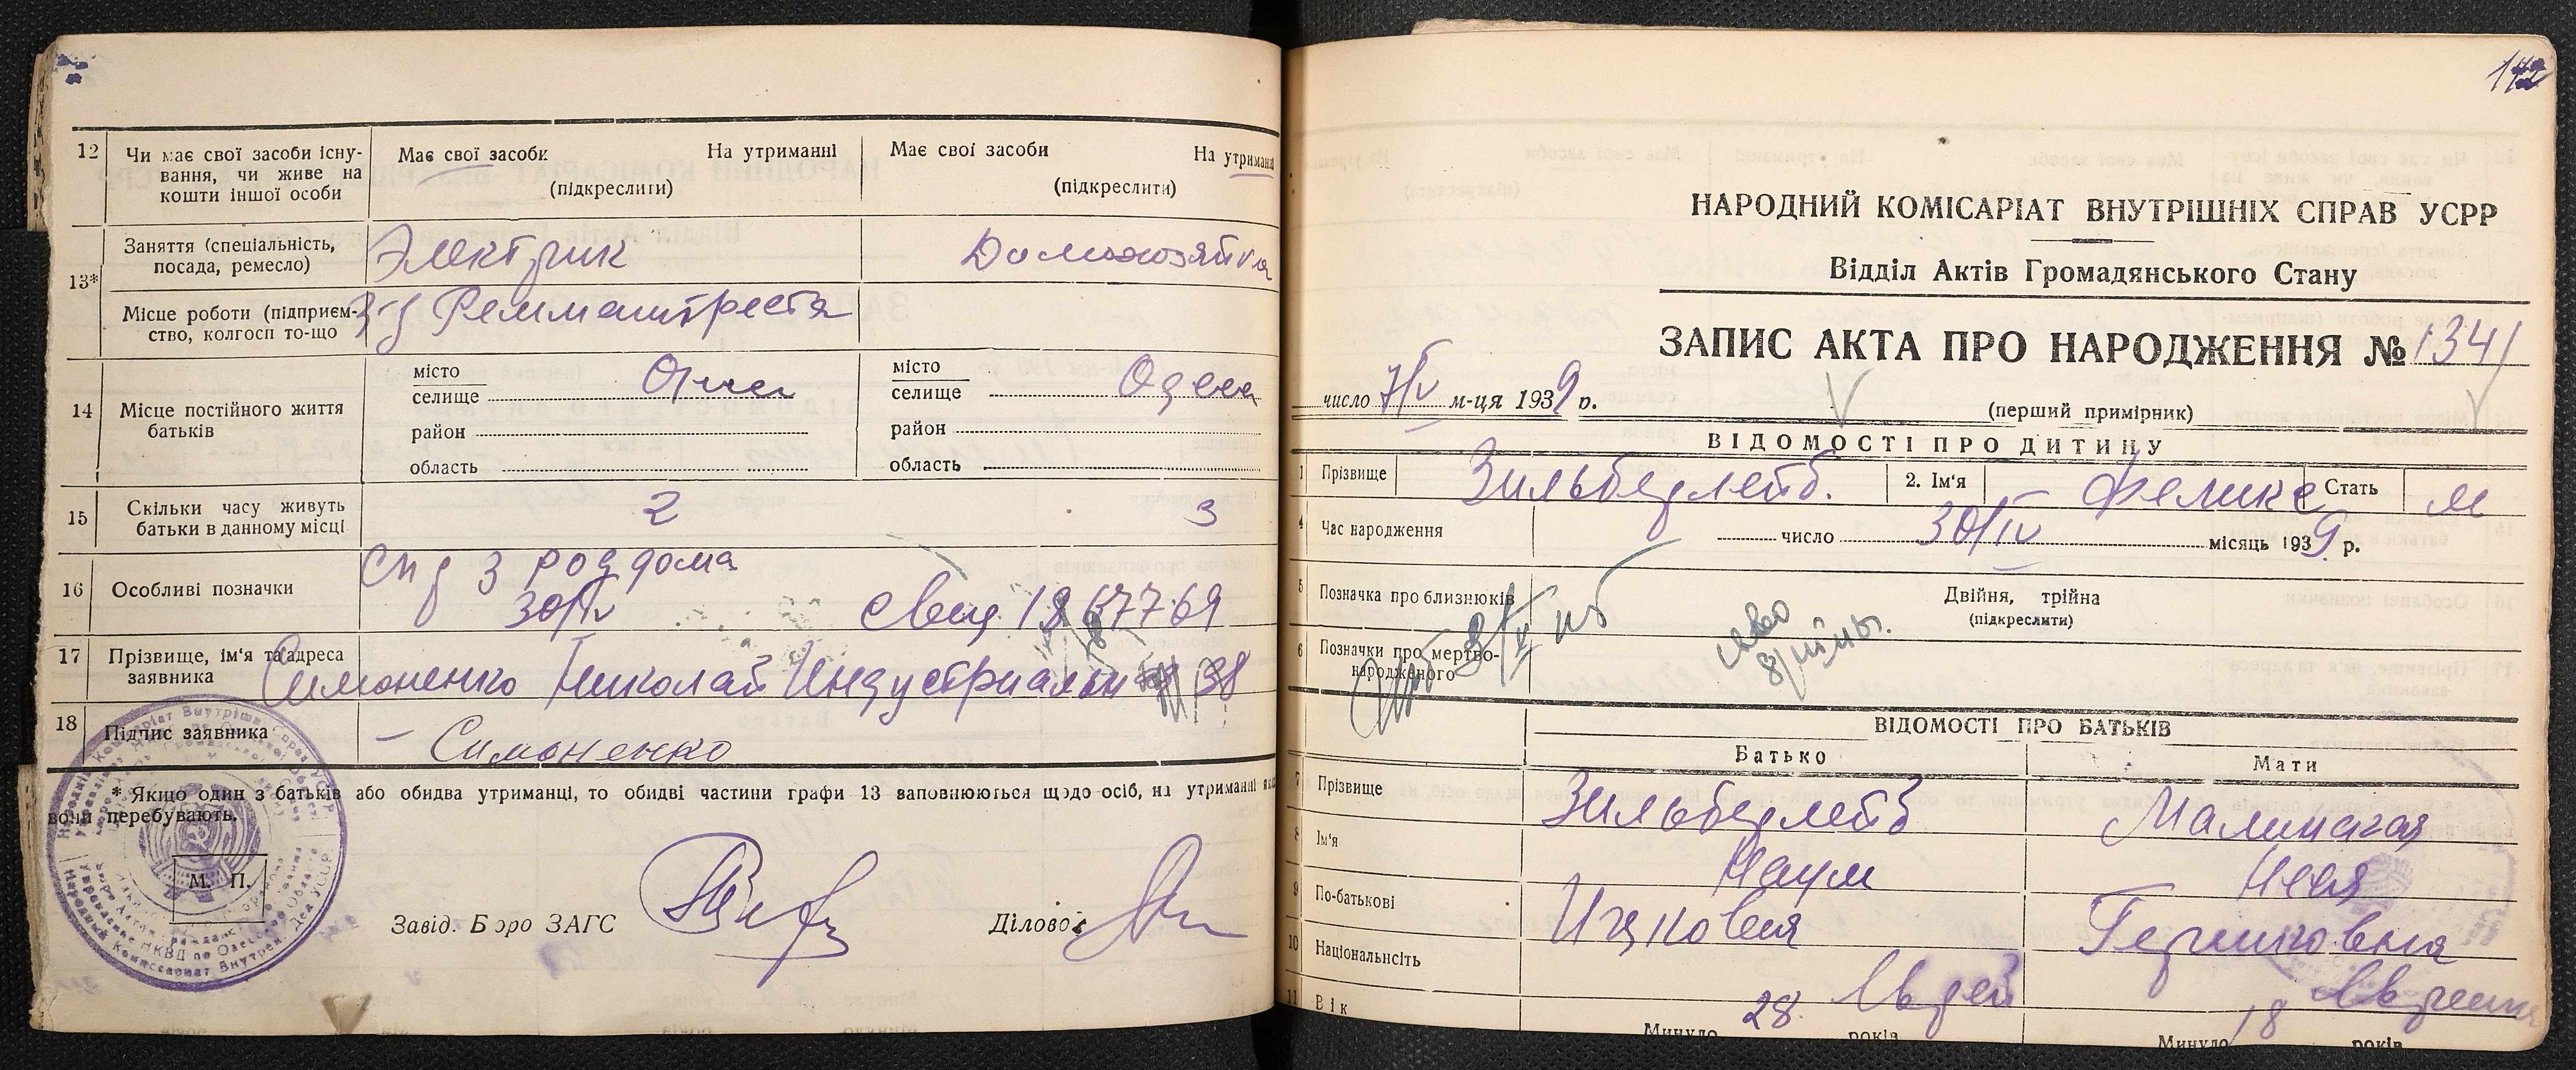 12 Чи має свої засоби існу-
вання, чи живе на
кошти іншої особи
Має свої засоби На утриманні
(підкреслити)
Має свої засоби На утриманні
(підкреслити)
13* Заняття (спеціальність,
посада, ремесло)
Электрик
Домохозяйка
Місце роботи (підприєм-
ство, колгосп то-що
З-д Реммаштреста
14 Місце постійного життя
батьків
місто
селище
район
область
місто
селище Одесса
район
область
15 Скільки часу живуть
батьки в данному місці
2
3
16 Особливі позначки
роддома
30/IV
17 Прізвище, ім'я та адреса
заявника
Симоненко Николай Индустриальн 38
18 Підпис заявника
– Симоненко
* Якщо один з батьків або обидва утриманці, то обидві частини графи 13 заповнюються щодо осіб, на утриманні яких
вони перебувають.
М. П.
Завід. Бюро ЗАГС
Діловод
142
НАРОДНИЙ КОМІСАРІАТ ВНУТРІШНІХ СПРАВ УСРР
Відділ Актів Громадянського Стану
ЗАПИС АКТА ПРО НАРОДЖЕННЯ № 1341
число 7/V м-ця 1939 р.
(перший примірник)
ВІДОМОСТІ ПРО ДИТИНУ
1 Прізвище Зильберлейб. 2. Ім'я Феликс Стать м
4 Час народження число 30/IV місяць 1939 р.
5 Позначка про близнюків
Двійня, трійна
(підкреслити)
6 Позначки про мертво-
народженого
ВІДОМОСТІ ПРО БАТЬКІВ
Батько Мати
7 Прізвище Зильберлейб Малинская
8 Ім'я Наум Неня
9 По-батькові Ицкович Гершковна
10 Національнсіть Еврей Еврейка
11 Вік Минуло 28 років Минуло 18 років